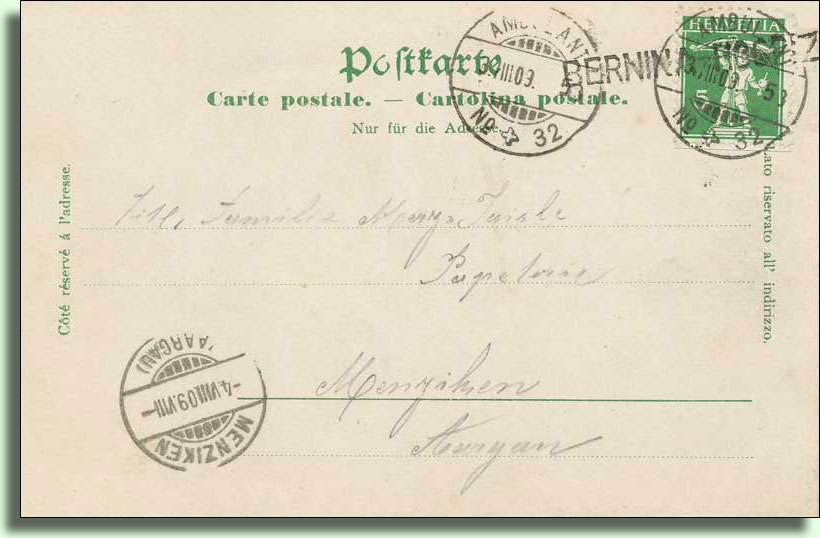 Postkarte
Carte postale. — Cartolina postale.
Nur für die Adresse.
HELVETIA
5
AMBULANT
3.VIII.09.
No 32
BERNINA
AMBULANT
3.VIII.09.
No 32
Côté réservé à l'adresse.
Lato riservato all' indirizzo.
Familie
Papeterie
Menziken
Aargau
(AARGAU)
-4.VIII.09.VIII-
MENZIKEN